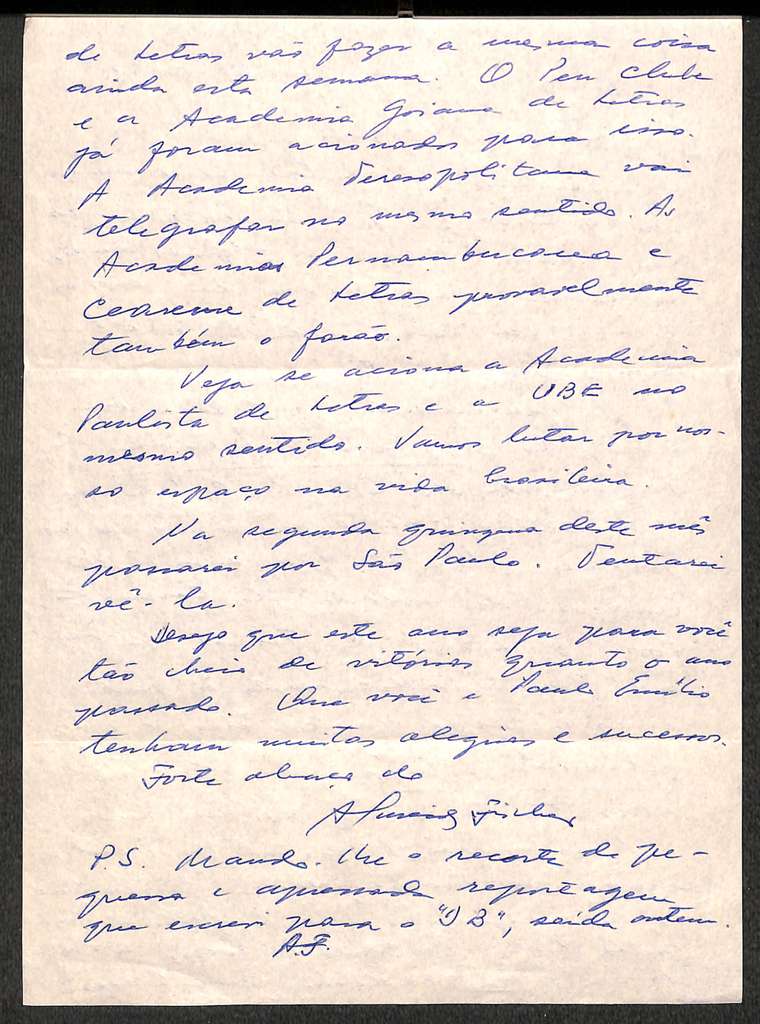 de Letras vão fazer a mesma coisa
ainda esta semana. O Pen Clube
e a Academia Goiana de Letras
já foram acionados para isso.
A Academia Teresopolitana vai
telegrafar no mesmo sentido. As
Academias Pernambucana e
Cearense de Letras provavelmente
também o farão.
Veja se aciona a Academia
Paulista de Letras e a UBE no
mesmo sentido. Vamos lutar por nos-
so espaço na vida brasileira.
Na segunda quinzena deste mês
passarei por São Paulo. Tentarei
vê-la.
Desejo que este ano seja para você
tão cheio de vitórias quanto o ano
passado. Que você e Paulo Emílio
tenham muitas alegrias e sucessos.
Forte abraço do
Almeida Fischer
P.S. Mando-lhe o recorte da pe-
quena e apressada reportagem
que escrevi para o "JB", saída ontem.
A.F.